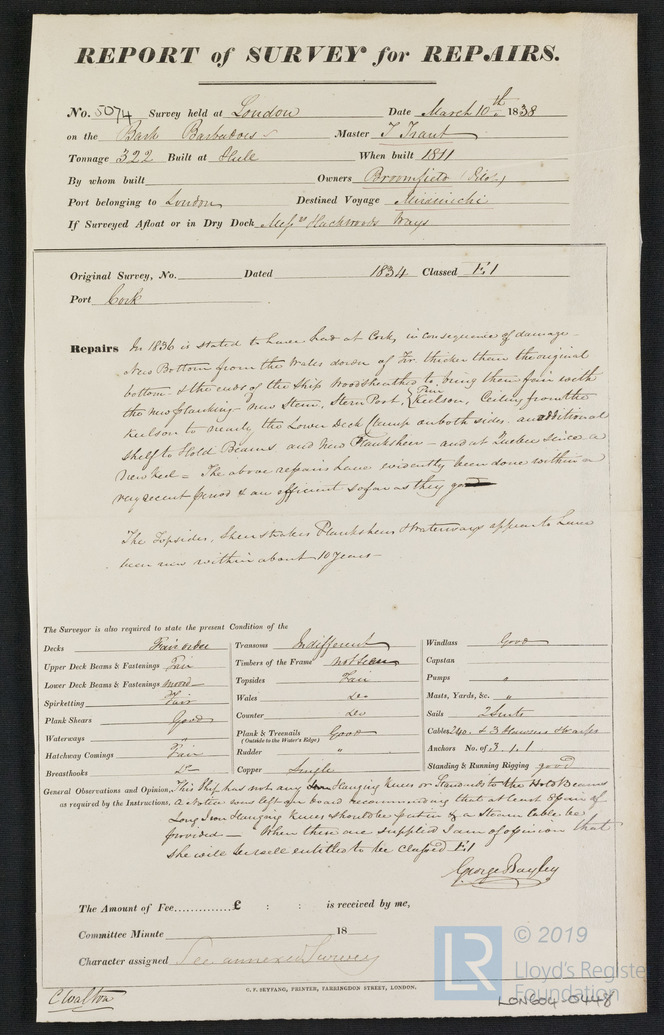 REPORT of SURVEY for REPAIRS.
No. 5074 Survey held at London Date March 10th 1838
on the Bark Barbadoes Master T Traut
Tonnage 322 Built at Hull When built 1811
By whom built Owners Broomfield
Port belonging to London Destined Voyage Miramichi
If Surveyed Afloat or in Dry Dock Messrs Ways
Original Survey, No. Dated 1834 Classed E1
Port Cork
Repairs In 1836 is stated to have had at Cork, in consequence of damage
New Bottom from the Wales down of Fir thicker than the original
bottom & the ends of the Ship Woodsheathed to bring them fair with
the new planking New Stem, Stern Post, Keelson, Ceiling from the
Keelson to nearly the Lower Deck Clamp on both sides, an additional
shelf to Hold Beams and New Planksheer and at Quebec since a
New Keel = The above repairs have evidently been done within a
very recent period & are efficient so far as they go
The Topsides, Sheerstrakes Planksheers & Waterways appear to have
been new within about 10 Years
The Surveyor is also required to state the present Condition of the
Decks Fair order
Upper Deck Beams & Fastenings Fair
Lower Deck Beams & Fastenings
Spirketting Fair
Plank Shears Good
Waterways "
Hatchway Comings Fair
Breasthooks Do
Transoms Indifferent
Timbers of the Frame not seen
Topsides Fair
Wales Do
Counter Do
Plank & Treenails Good
(Outside to the Water's Edge)
Rudder "
Copper Single
Windlass Good
Capstan
Pumps "
Masts, Yards, &c. "
Sails 2 Suits
Cables 240. & 3 Hawsers
Anchors No. of 3. 1. 1
Standing & Running Rigging good
General Observations and Opinion, This Ship has not any Iron Hanging Knees or Standards to the Hold Beams
as required by the Instructions. A Notice was left on board recommending that at least 8 pair of
Long Iron Hanging Knees should be put in & a Stream Cable be
provided — When these are supplied I am of opinion that
she will be well entitled to be classed E1
George Bayley
The Amount of Fee.............. £ : : is received by me,
Committee Minute 18
Character assigned See annexed Survey
C. F. SEYFANG, PRINTER, FARRINGDON STREET, LONDON.
C Walton
LR © 2019
Lloyd's Register
Foundation
LON604-0448